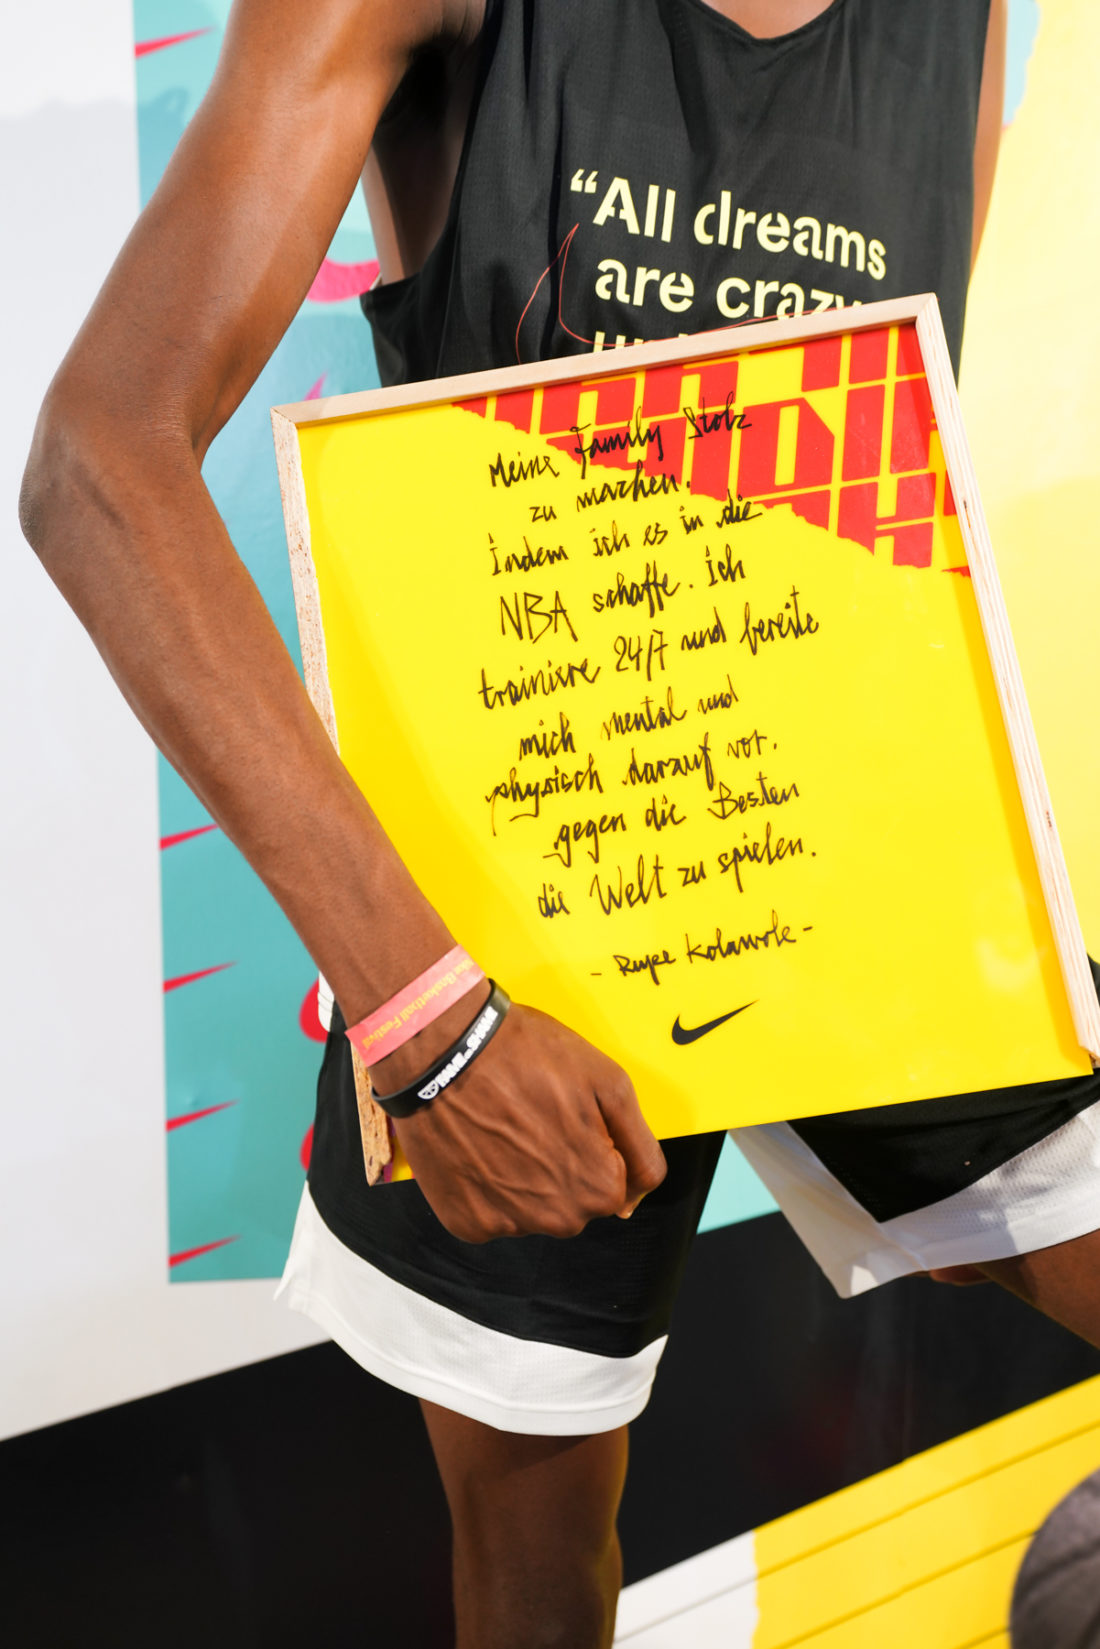 “All dreams
are crazy
Meine Family Stolz
zu machen.
indem ich es in die
NBA schaffe. ich
trainiere 24/7 und bereite
mich mental und
physisch darauf vor.
gegen die Besten
die Welt zu spielen.
- Kolawole -
Basketball Festival